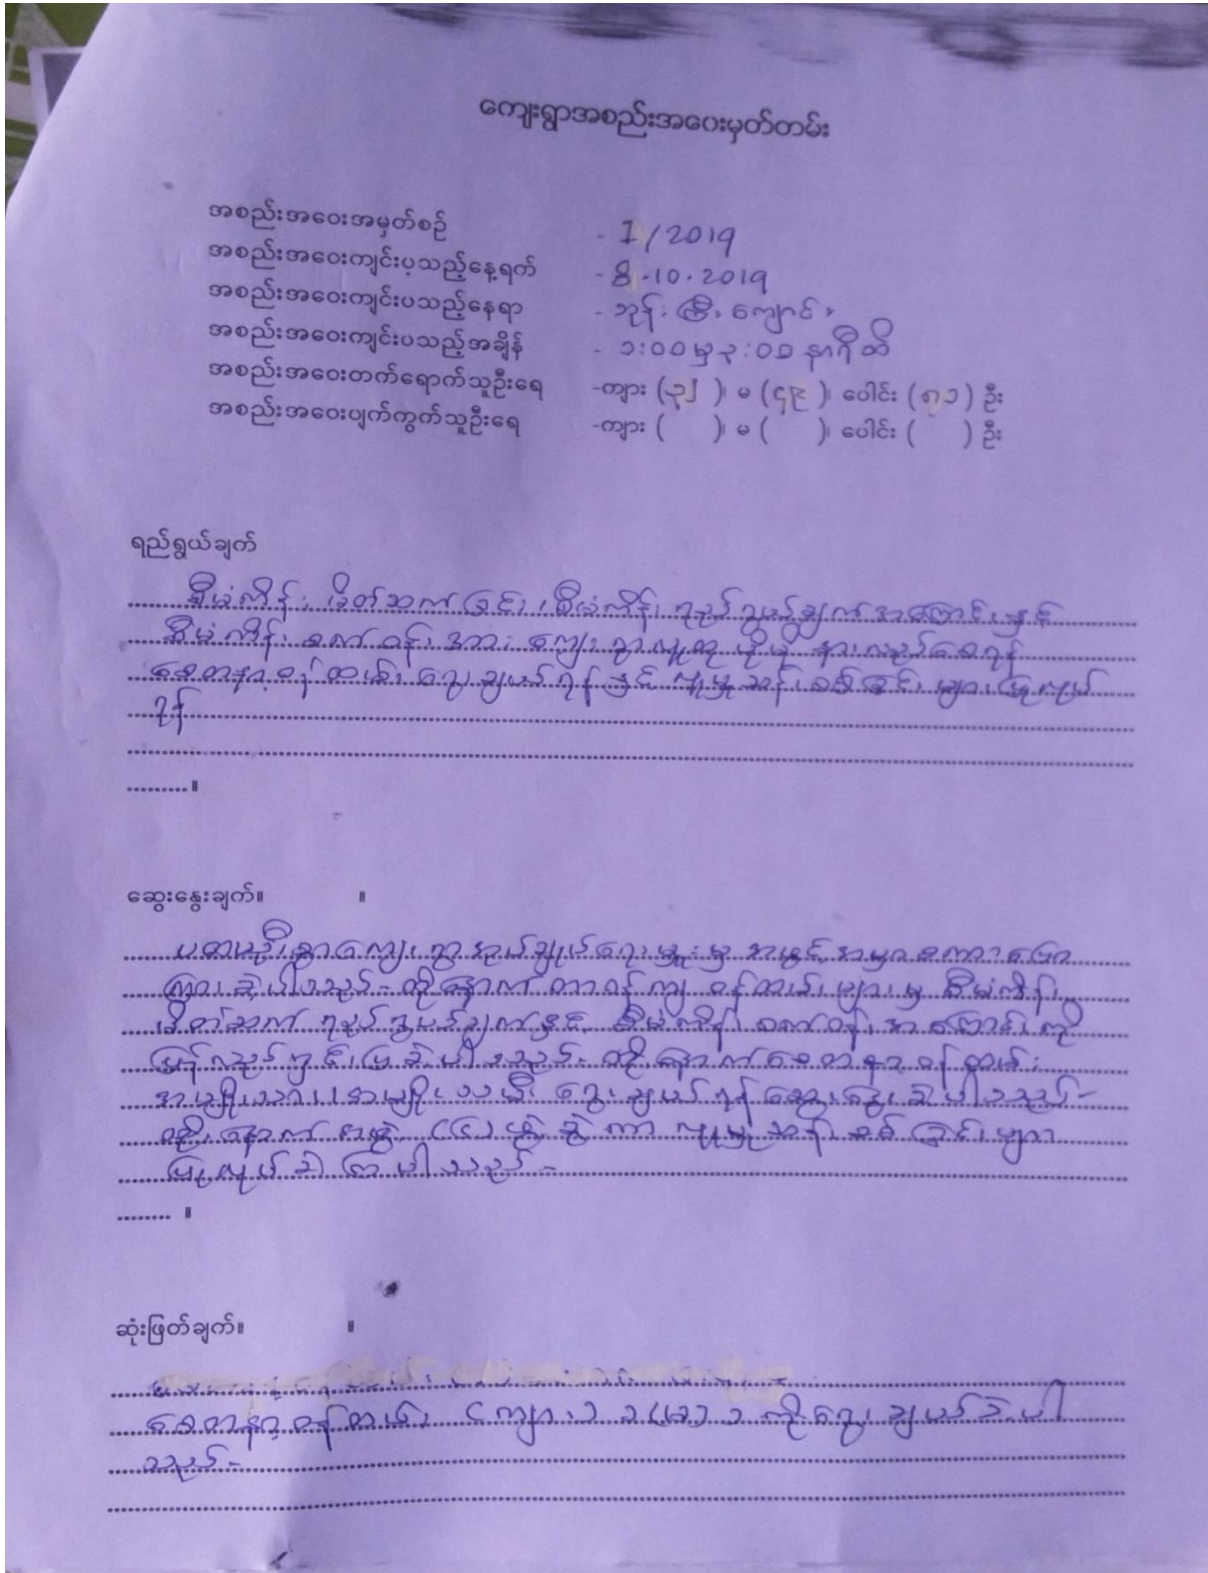 ကျေးရွာအစည်းအဝေးမှတ်တမ်း
အစည်းအဝေးအမှတ်စဉ် - 1/2019
အစည်းအဝေးကျင်းပ့သည့်နေ့ရက် - 8.10.2019
အစည်းအဝေးကျင်းပသည့်နေရာ - ဘုန်းကြီးကျောင်း
အစည်းအဝေးကျင်းပသည့်အချိန် - ၁:၀၀ မှ ၃:၀၀ နာရီထိ
အစည်းအဝေးတက်ရောက်သူဦးရေ -ကျား (၃၂)၊ မ (၄၉)၊ ပေါင်း (၈၁) ဦး
အစည်းအဝေးပျက်ကွက်သူဦးရေ -ကျား ( )၊ မ ( )၊ ပေါင်း ( ) ဦး
ရည်ရွယ်ချက်
စီမံကိန်း မိတ်ဆက်ခြင်း၊ စီမံကိန်း ရည်ရွယ်ချက်အကြောင်းနှင့်
စီမံကိန်း စက်ဝန်းအား ကျေးရွာလူထု ပိုမို နားလည်စေရန်
စေတနာ့ဝန်ထမ်း ရွေးချယ်ရန်နှင့် လူမှုဆန်းစစ်ခြင်းများပြုလုပ်
ရန်
။
ဆွေးနွေးချက်။ ။
ပထမဦးစွာကျေးရွာအုပ်ချုပ်ရေးမှူးမှ အဖွင့်အမှာစကားပြော
ကြားခဲ့ပါသည်- ထို့နောက် တာဝန်ကျ ဝန်ထမ်းများမှ စီမံကိန်း
မိတ်ဆက် ရည်ရွယ်ချက်နှင့် စီမံကိန်း စက်ဝန်းအကြောင်းကို
ပြန်လည်ရှင်းပြခဲ့ပါသည်- ထို့နောက်စေတနာ့ဝန်ထမ်း
အမျိုးသား၊ အမျိုးသမီး ရွေးချယ်ရန် ဆွေးနွေးခဲ့ပါသည်-
ထို့နောက် အဖွဲ့ (၄) ဖွဲ့ ခွဲကာ လူမှုဆန်းစစ်ခြင်းများ
ပြုလုပ်ခဲ့ကြပါသည်-
။
ဆုံးဖြတ်ချက်။ ။
စေတနာ့ဝန်ထမ်း (ကျား) ၁ (မ) ၁ ကိုရွေးချယ်ခဲ့ပါ
သည်-